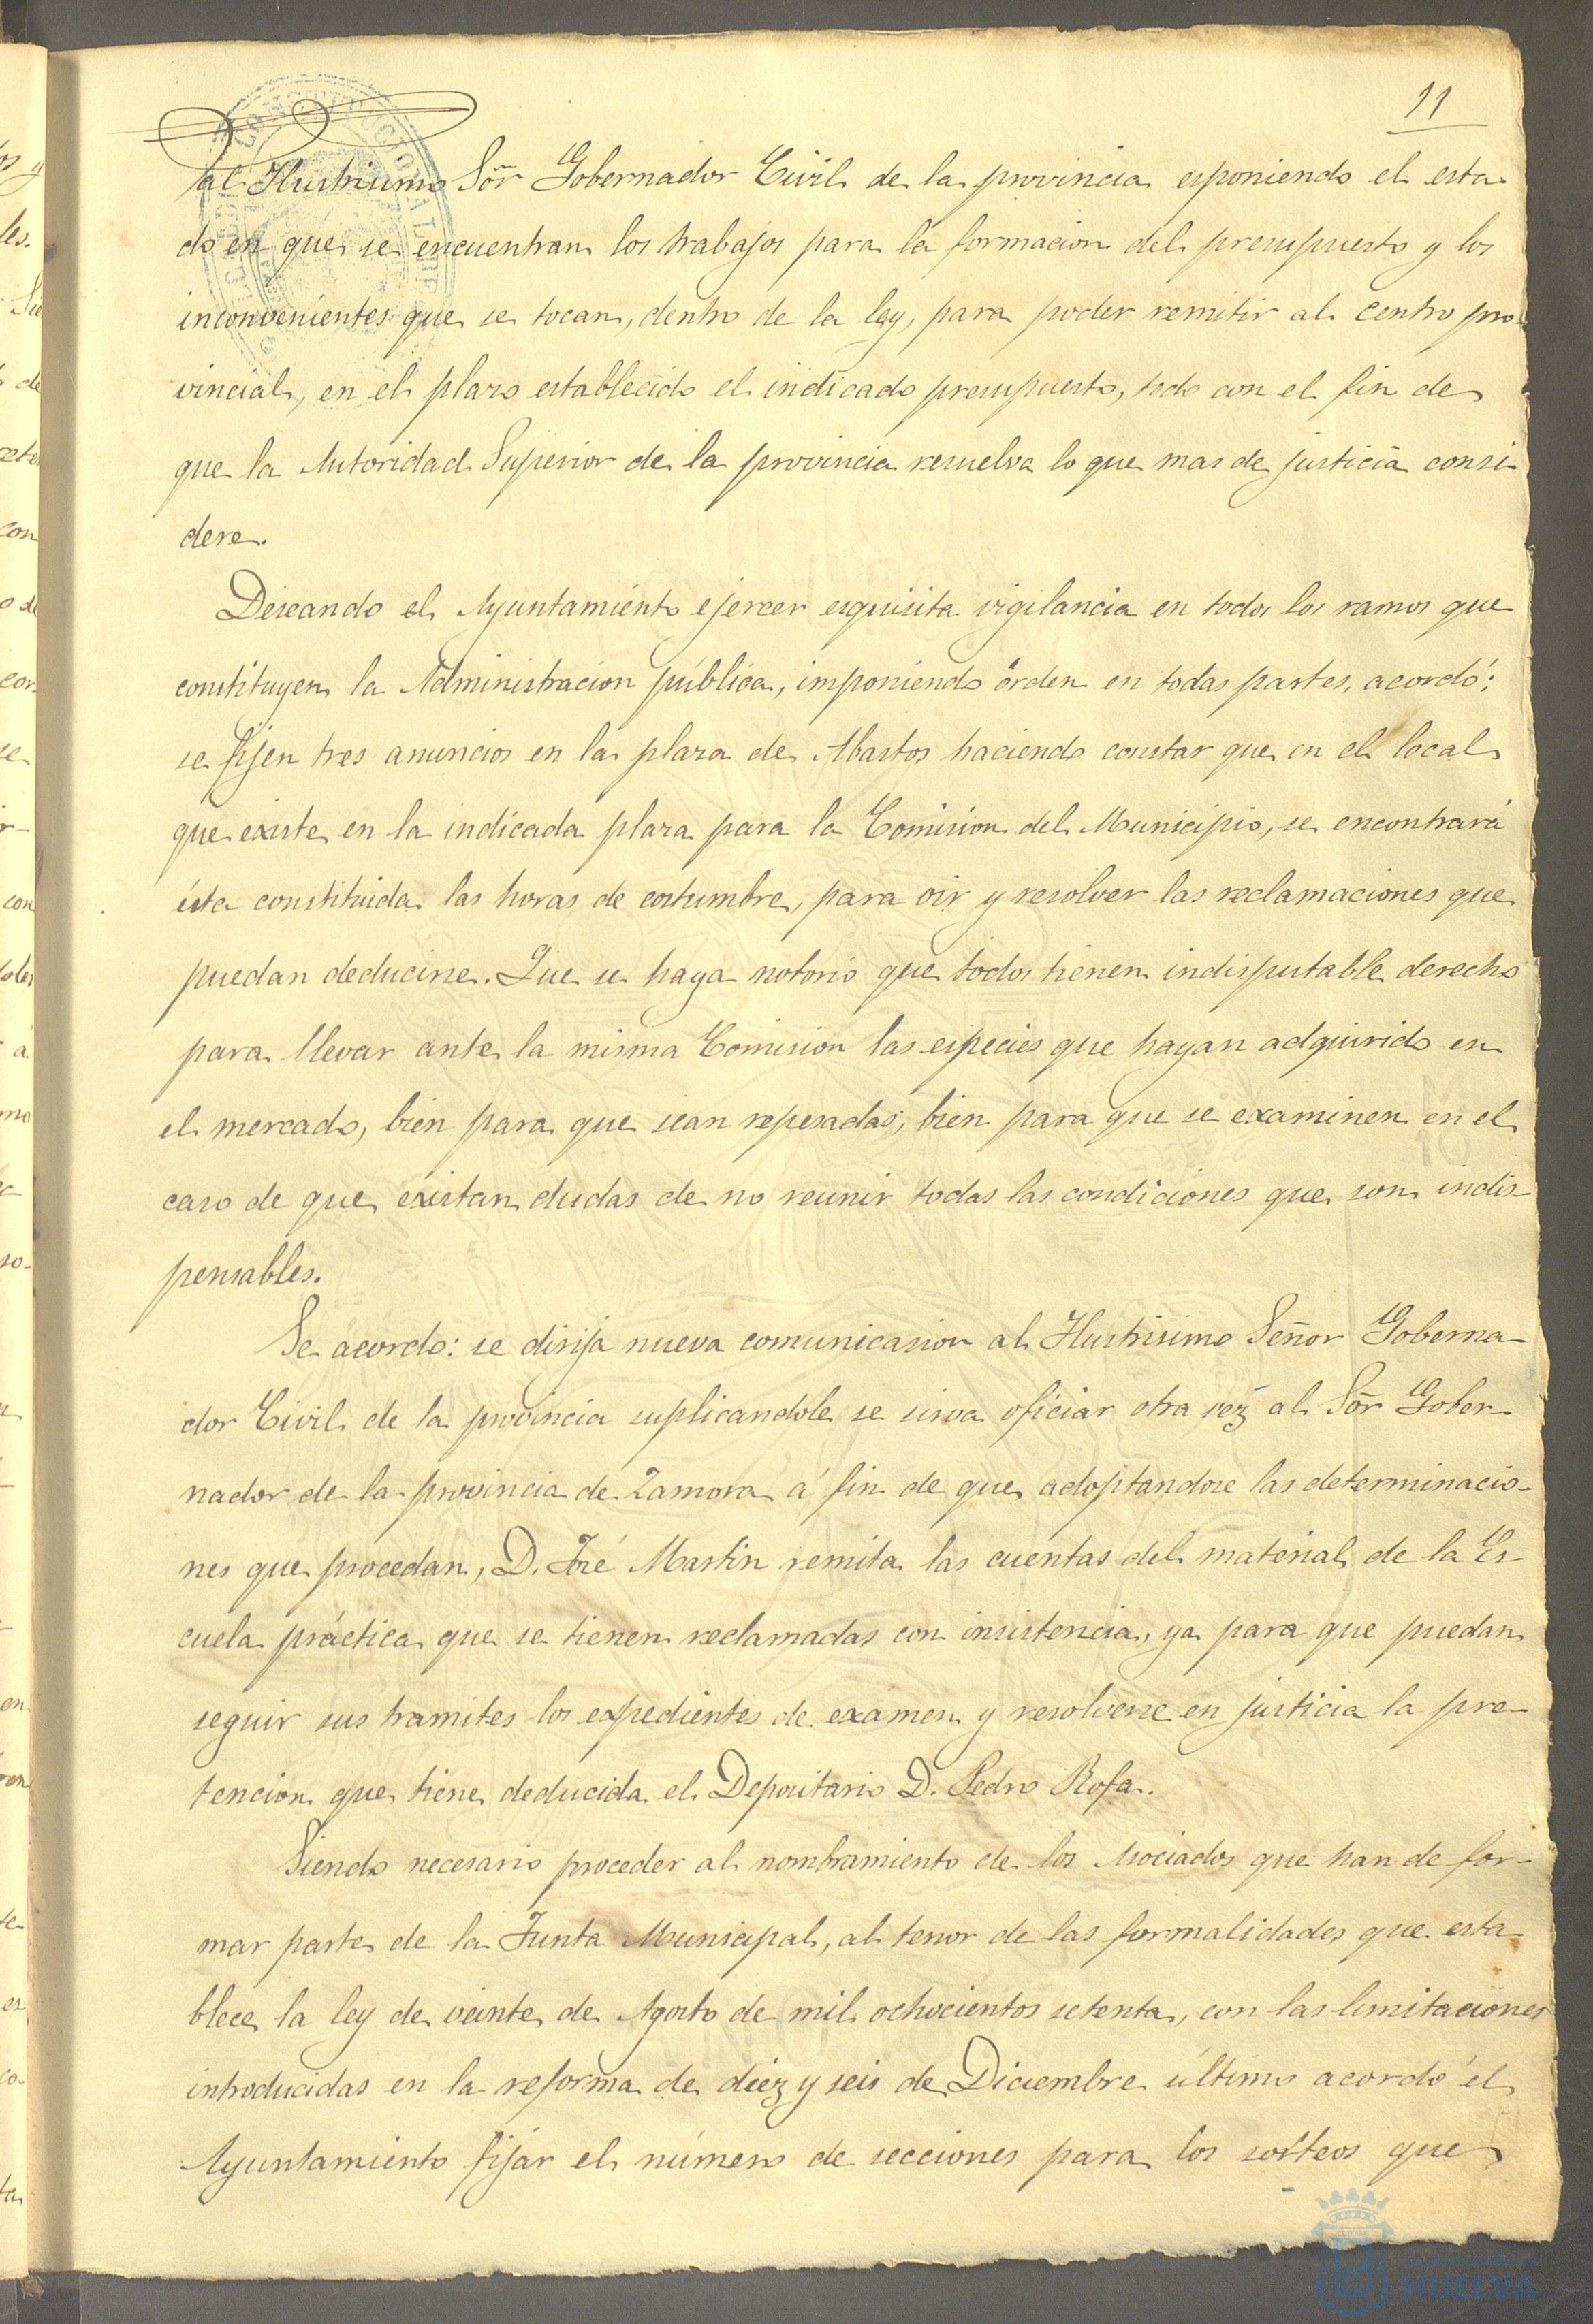 11
al Ilustrisimo Sōr Gobernador Civil de la provincia esponiendo el esta-
do en que se encuentran los trabajos para la formacion del presupuesto y los
inconvenientes que se tocan, dentro de la ley, para poder remitir al centro pro-
vincial, en el plazo establecido el indicado presupuesto, todo con el fin de
que la Autoridad Superior de la provincia resuelva lo que mas de justicia consi-
dere.
Deseando el Ayuntamiento ejercer esquisita vigilancia en todos los ramos que
constituyen la Administracion pública, imponiendo órden en todas partes, acordó:
se fijen tres anuncios en la plaza de Abastos haciendo constar que en el local
que existe en la indicada plaza para la Comision del Municipio, se encontrará
ésta constituida las horas de costumbre, para oir y resolver las reclamaciones que
puedan deducirse. Que se haga notorio que todos tienen indisputable derecho
para llevar ante la misma Comision las especies que hayan adquirido en
el mercado, bien para que sean repesadas, bien para que se examinen en el
caso de que existan dudas de no reunir todas las condiciones que son indis-
pensables.
Se acordo: se dirija nueva comunicasion al Ilustrisimo Señor Goberna-
dor Civil de la provincia suplicandole se sirva oficiar otra vez al Sōr Gober-
nador de la provincia de Zamora á fin de que adoptandose las determinacio-
nes que procedan, D. José Martin remita las cuentas del material de la Es-
cuela práctica que se tienen reclamadas con insistencia, ya para que puedan
seguir sus tramites los expedientes de examen y resolverse en justicia la pre-
tencion que tiene deducida el Depositario D. Pedro Rofa.
Siendo necesario proceder al nombramiento de los Asociados que han de for-
mar parte de la Junta Municipal, al tenor de las formalidades que esta-
blece la ley de veinte de Agosto de mil ochocientos setenta, con las limitaciones
introducidas en la reforma de diez y seis de Diciembre último acordó el
Ayuntamiento fijar el número de secciones para los sorteos que
HUELVA